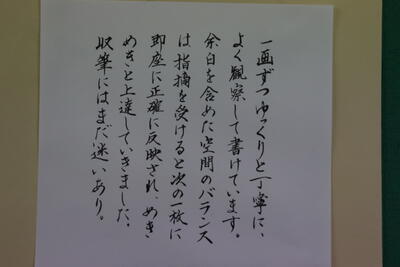 一画ずつゆっくりと丁寧に、
よく観察して書けています。
余白を含めた空間のバランス
は指摘を受けると次の一枚に
即座に正確に反映され、めき
めきと上達していきました。
収筆にはまだ迷いあり。